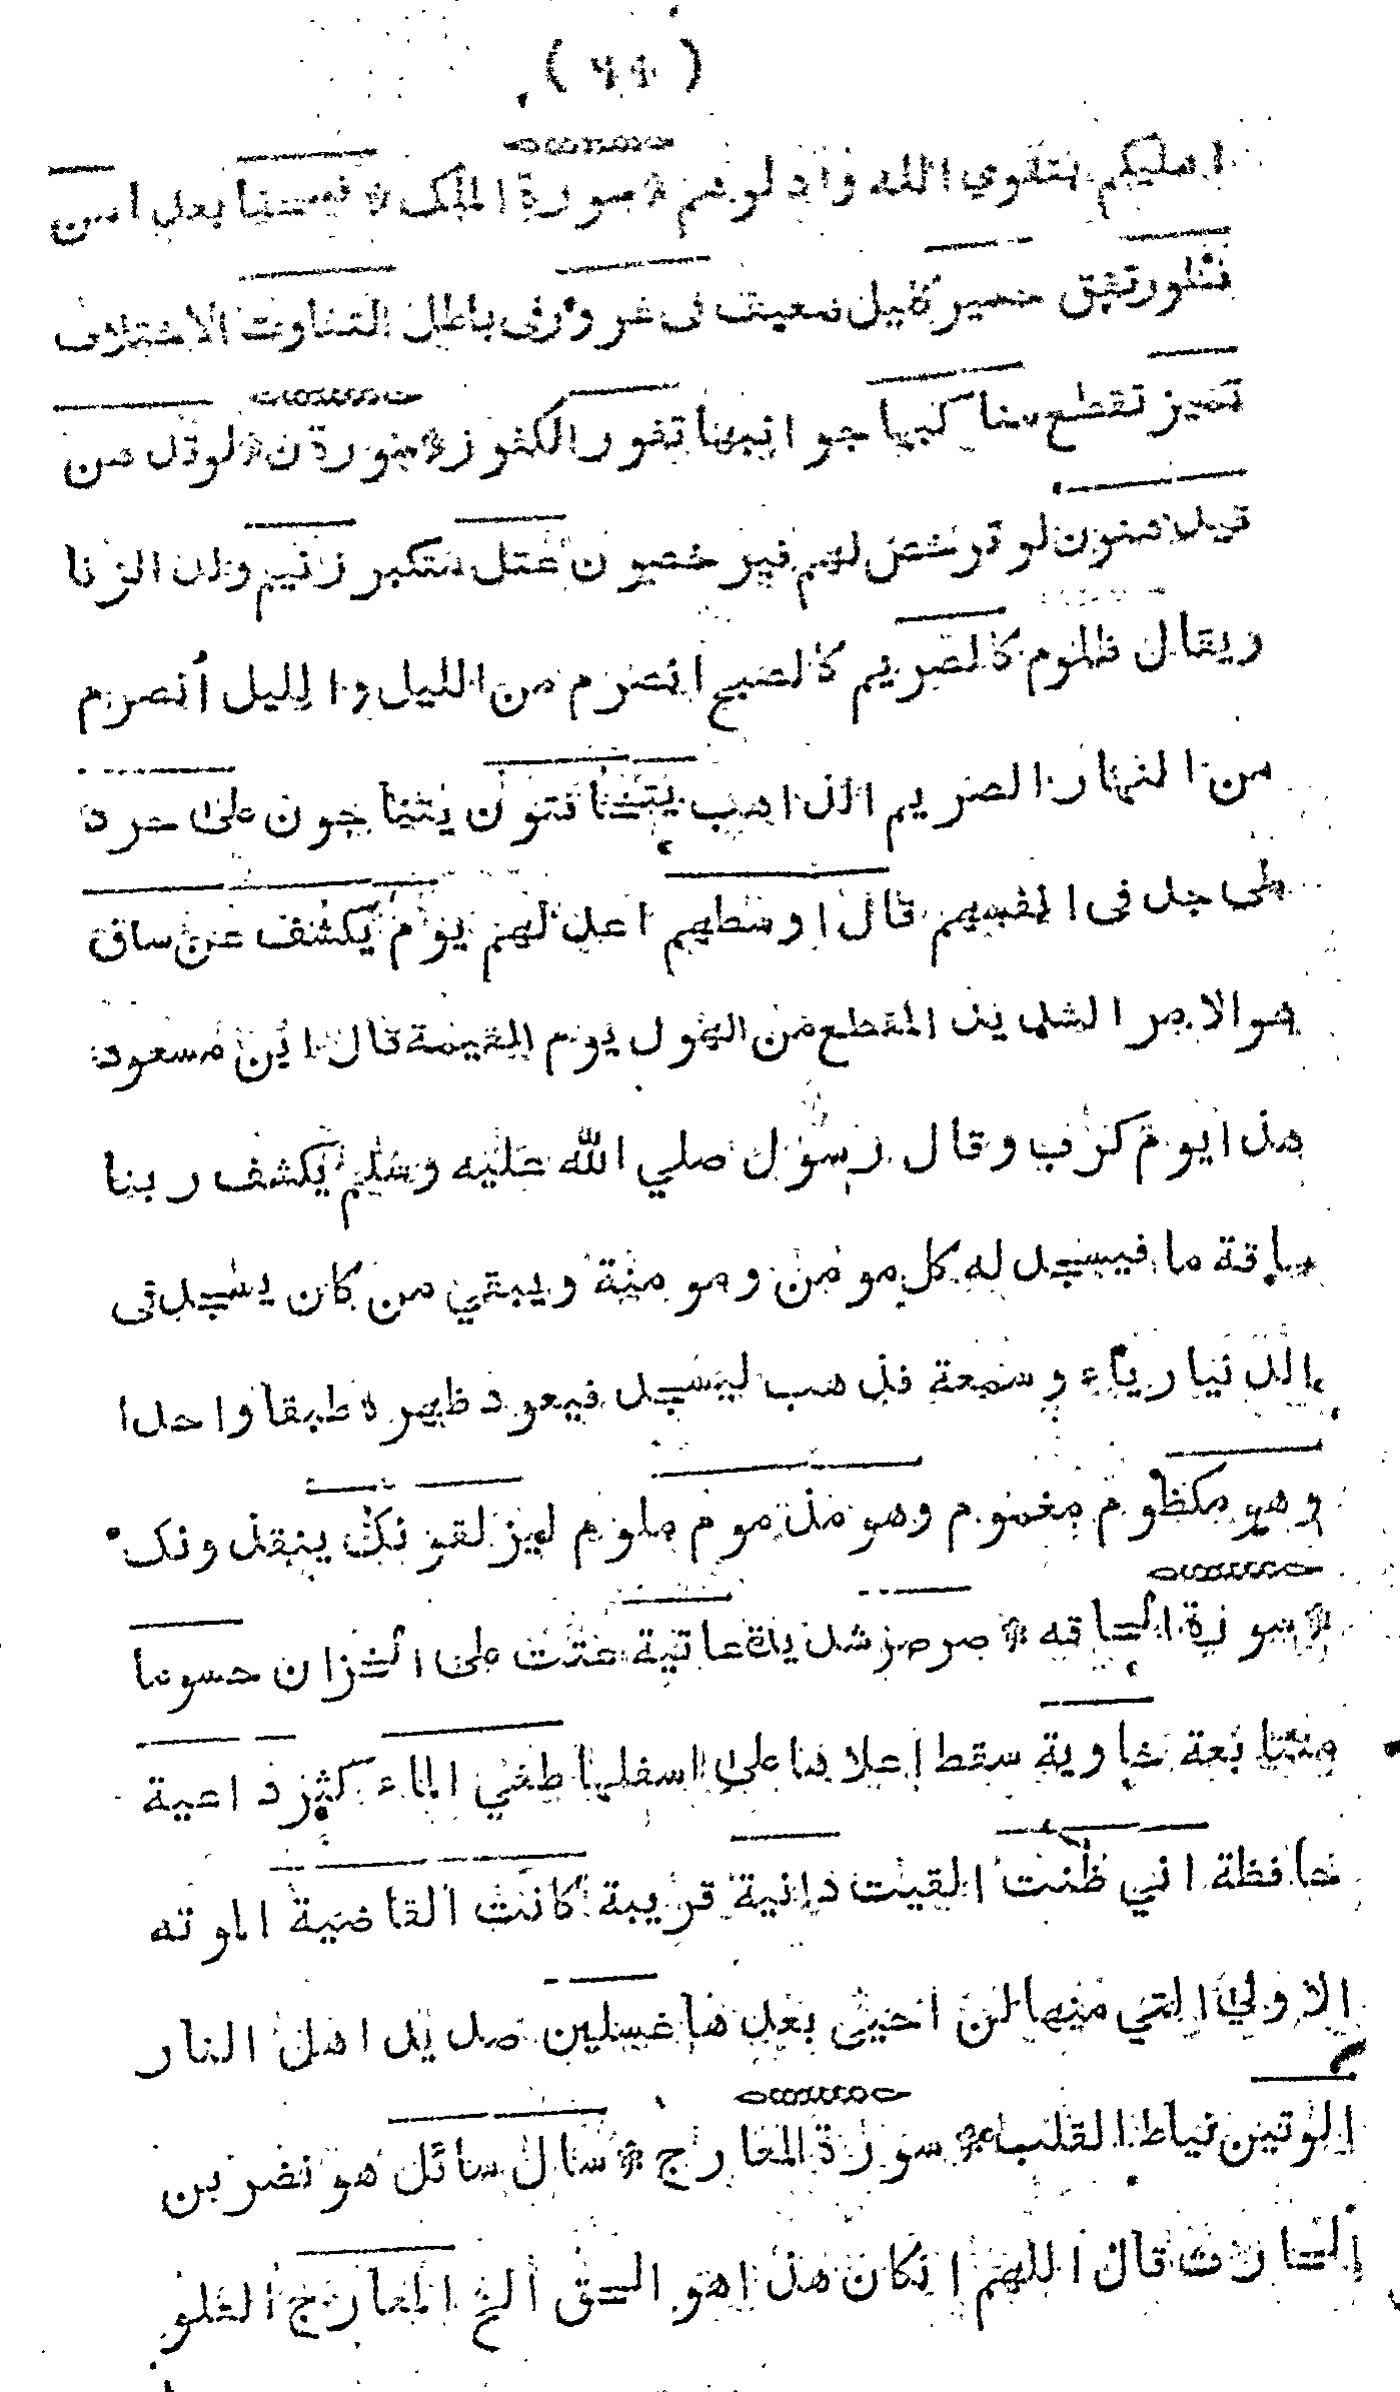 ( ٦٩ )
اهليكم بتقوى الله وادبوهم * سورة الملك * فسحقا بعدا من
تفور تفيق حسير كليل ضعيف فى غرور فى باطل التفاوت الاختلاف
تميز تقطع مناكبها جوانبها تفور الكفور * سورة ن * لو تدهن
قيدهنون لو ترخص لهم فيرخصون عتل متكبر زنيم ولد الزنا
ويقال ظلوم كالصريم كالصبح انصرم من الليل والليل انصرم
من النهار الصريم الذاهب يتخافتون يتناجون على حرد
على جد فى انفسهم قال اوسطهم اعدلهم يوم يكشف عن ساق
هو الامر الشديد المقطع من الهول يوم القيمة قال ابن مسعود
هذا يوم كرب وقال رسول صلي الله عليه وسلم يكشف ربنا
ساقة ما فيسجد له كل مومن ومومنة ويبقي من كان يسجد فى
الدنيا رياء وسمعة فذهب ليسجد فيعود ظهره طبقا واحدا
وهو مكظوم مغموم وهو مذموم ملوم ليزلقونك ينقذونك
* سورة الحاقه * صرصر شديدة عاتية عتت على الخزان حسوما
متتابعة خاوية سقط اعلاها على اسفلها طغي الماء كثر داعية
حافظة اني ظننت ايقنت دانية قريبة كانت القاضية الموته
الاولي التي متها لن احيى بعدها غسلين صديد اهل النار
الوتين نياط القلب * سورة المعارج * سال سائل هو نضر بن
الحارث قال اللهم ان كان هذا هو الحق الخ المعارج العلو